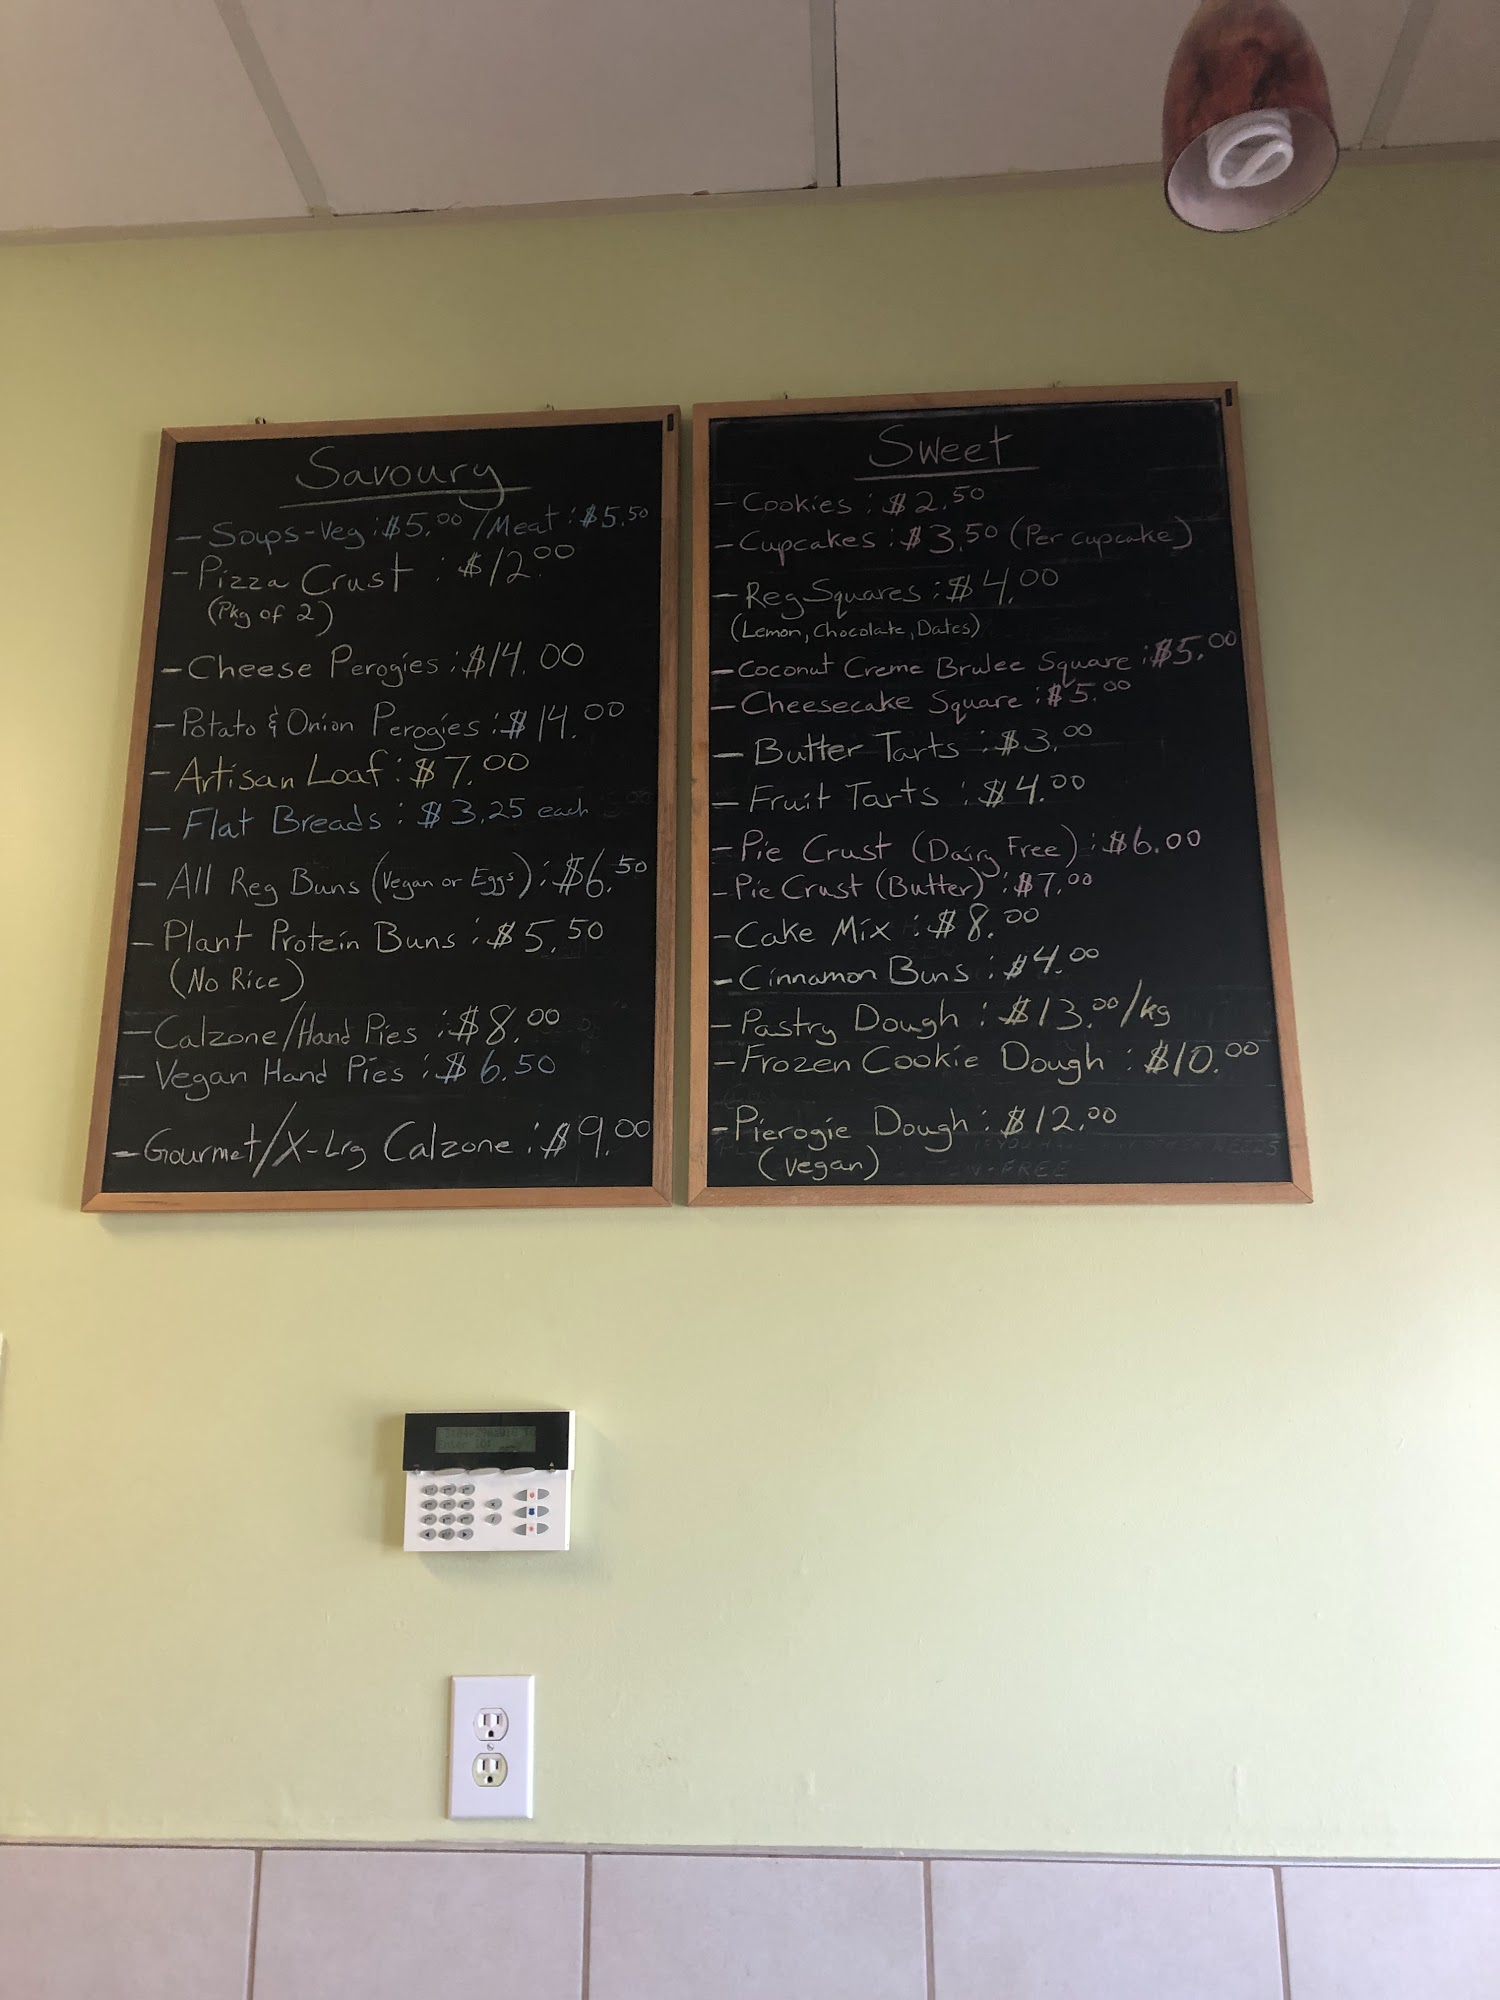 Savoury
- Soups-Veg : $5.00 / Meat : $5.50
- Pizza Crust : $12.00
(Pkg of 2)
- Cheese Perogies : $14.00
- Potato & Onion Perogies : $14.00
- Artisan Loaf : $7.00
- Flat Breads : $3.25 each
- All Reg Buns (Vegan or Eggs) : $6.50
- Plant Protein Buns : $5.50
(No Rice)
- Calzone/Hand Pies : $8.00
- Vegan Hand Pies : $6.50
- Gourmet/X-Lrg Calzone : $9.00
Sweet
- Cookies : $2.50
- Cupcakes : $3.50 (Per cupcake)
- Reg Squares : $4.00
(Lemon, Chocolate, Dates)
- Coconut Creme Brulee Square : $5.00
- Cheesecake Square : $5.00
- Butter Tarts : $3.00
- Fruit Tarts : $4.00
- Pie Crust (Dairy Free) : $6.00
- Pie Crust (Butter) : $7.00
- Cake Mix : $8.00
- Cinnamon Buns : $4.00
- Pastry Dough : $13.00/kg
- Frozen Cookie Dough : $10.00
- Pierogie Dough : $12.00
(Vegan)